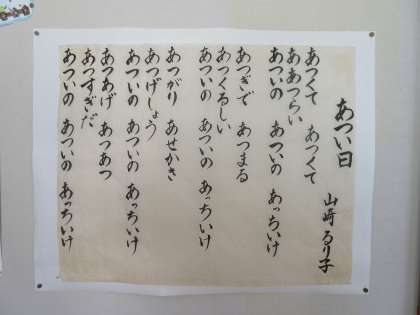 あつい日
山崎 るり子
あつくて あつくて
ああつらい
あついの あついの あっちいけ
あつぎで あつまる
あつくるしい
あついの あついの あっちいけ
あつがり あせかき
あつげしょう
あついの あついの あっちいけ
あつあげ あつあつ
あつすぎだ
あついの あついの あっちいけ